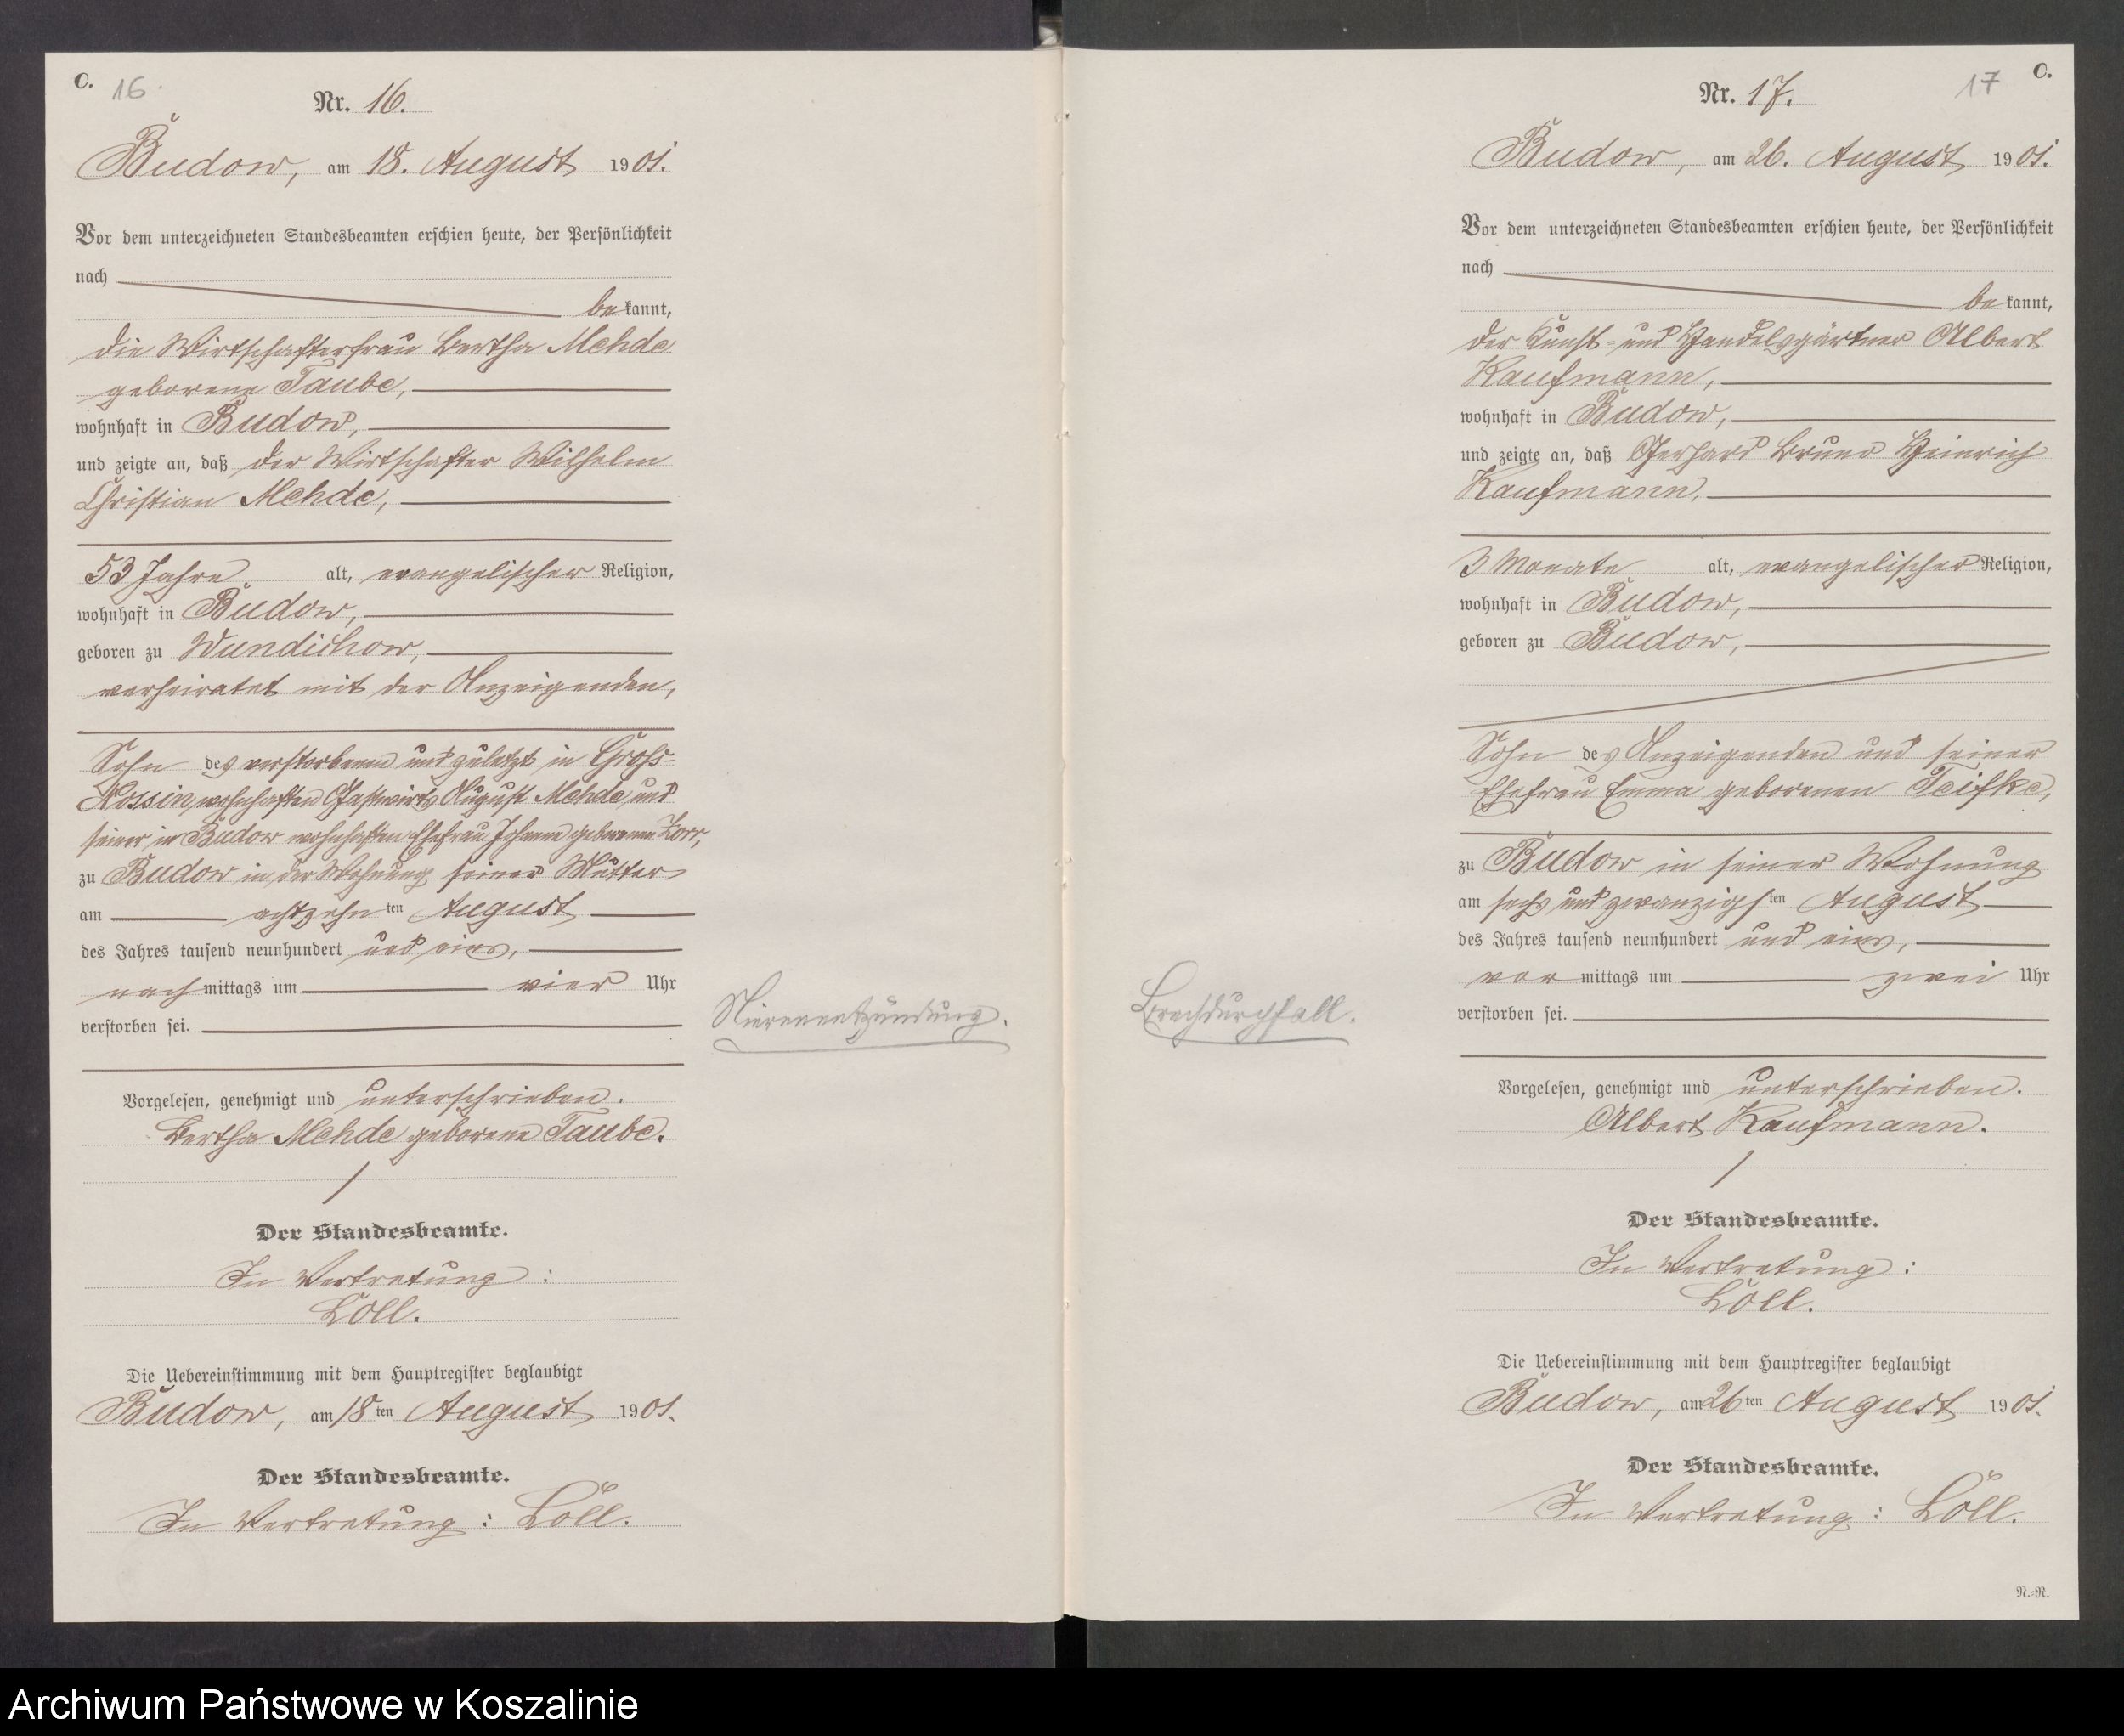 C. 16.
Nr. 16.
Budow, am 18. August 1901.
Vor dem unterzeichneten Standesbeamten erschien heute, der Persönlichkeit
nach
bekannt,
die Wirtschafterfrau Bertha Mehde
geborene Taube,
wohnhaft in Budow,
und zeigte an, daß der Wirtschafter Wilhelm
Christian Mehde,
53 Jahre alt, evangelischer Religion,
wohnhaft in Budow,
geboren zu Wundichow,
verheiratet mit der Anzeigenden,
Sohn des verstorbenen und zuletzt in Gross-
Nossin wohnhaften Gastwirts August Mehde und
seiner in Budow wohnhaften Ehefrau Johanne geborenen Zorr,
zu Budow in der Wohnung seiner Mutter
am achtzehnten August
des Jahres tausend neunhundert und eins,
nachmittags um vier Uhr
verstorben sei.
Nierenentzündung.
Vorgelesen, genehmigt und unterschrieben.
Bertha Mehde geborene Taube.
Der Standesbeamte.
In Vertretung:
Löll.
Die Uebereinstimmung mit dem Hauptregister beglaubigt
Budow, am 18ten August 1901.
Der Standesbeamte.
In Vertretung: Löll.
17 C.
Nr. 17.
Budow, am 26. August 1901.
Vor dem unterzeichneten Standesbeamten erschien heute, der Persönlichkeit
nach
bekannt,
der Kunst- und Handelsgärtner Albert
Kaufmann,
wohnhaft in Budow,
und zeigte an, daß Gerhard Bruno Heinrich
Kaufmann,
3 Monate alt, evangelischer Religion,
wohnhaft in Budow,
geboren zu Budow,
Sohn des Anzeigenden und seiner
Ehefrau Emma geborenen Teifke,
zu Budow in seiner Wohnung
am sechs und zwanzigsten August
des Jahres tausend neunhundert und eins,
vormittags um zwei Uhr
verstorben sei.
Brechdurchfall.
Vorgelesen, genehmigt und unterschrieben.
Albert Kaufmann.
Der Standesbeamte.
In Vertretung:
Löll.
Die Uebereinstimmung mit dem Hauptregister beglaubigt
Budow, am 26ten August 1901.
Der Standesbeamte.
In Vertretung: Löll.
N.=N.
Archiwum Państwowe w Koszalinie